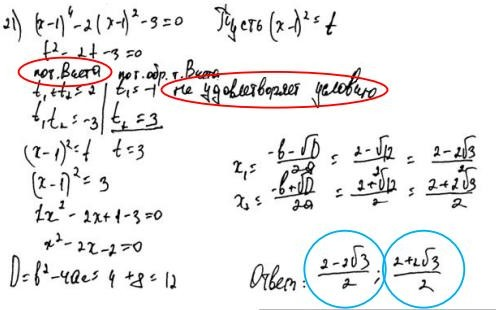 21) (x-1)⁴-2(x-1)²-3=0 Пусть (x-1)²=t
t²-2t-3=0
по т. Виета по т. обр. т. Виета
t₁+t₂=2 t₁=-1 не удовлетворяет условию
t₁t₂=-3 t₂=3
(x-1)²=t t=3
(x-1)²=3
1x²-2x+1-3=0
x²-2x-2=0
D=b²-4ac=4+8=12
x₁=(-b-√D)/2a=(2-√12)/2=(2-2√3)/2
x₂=(-b+√D)/2a=(2+√12)/2=(2+2√3)/2
Ответ: (2-2√3)/2; (2+2√3)/2